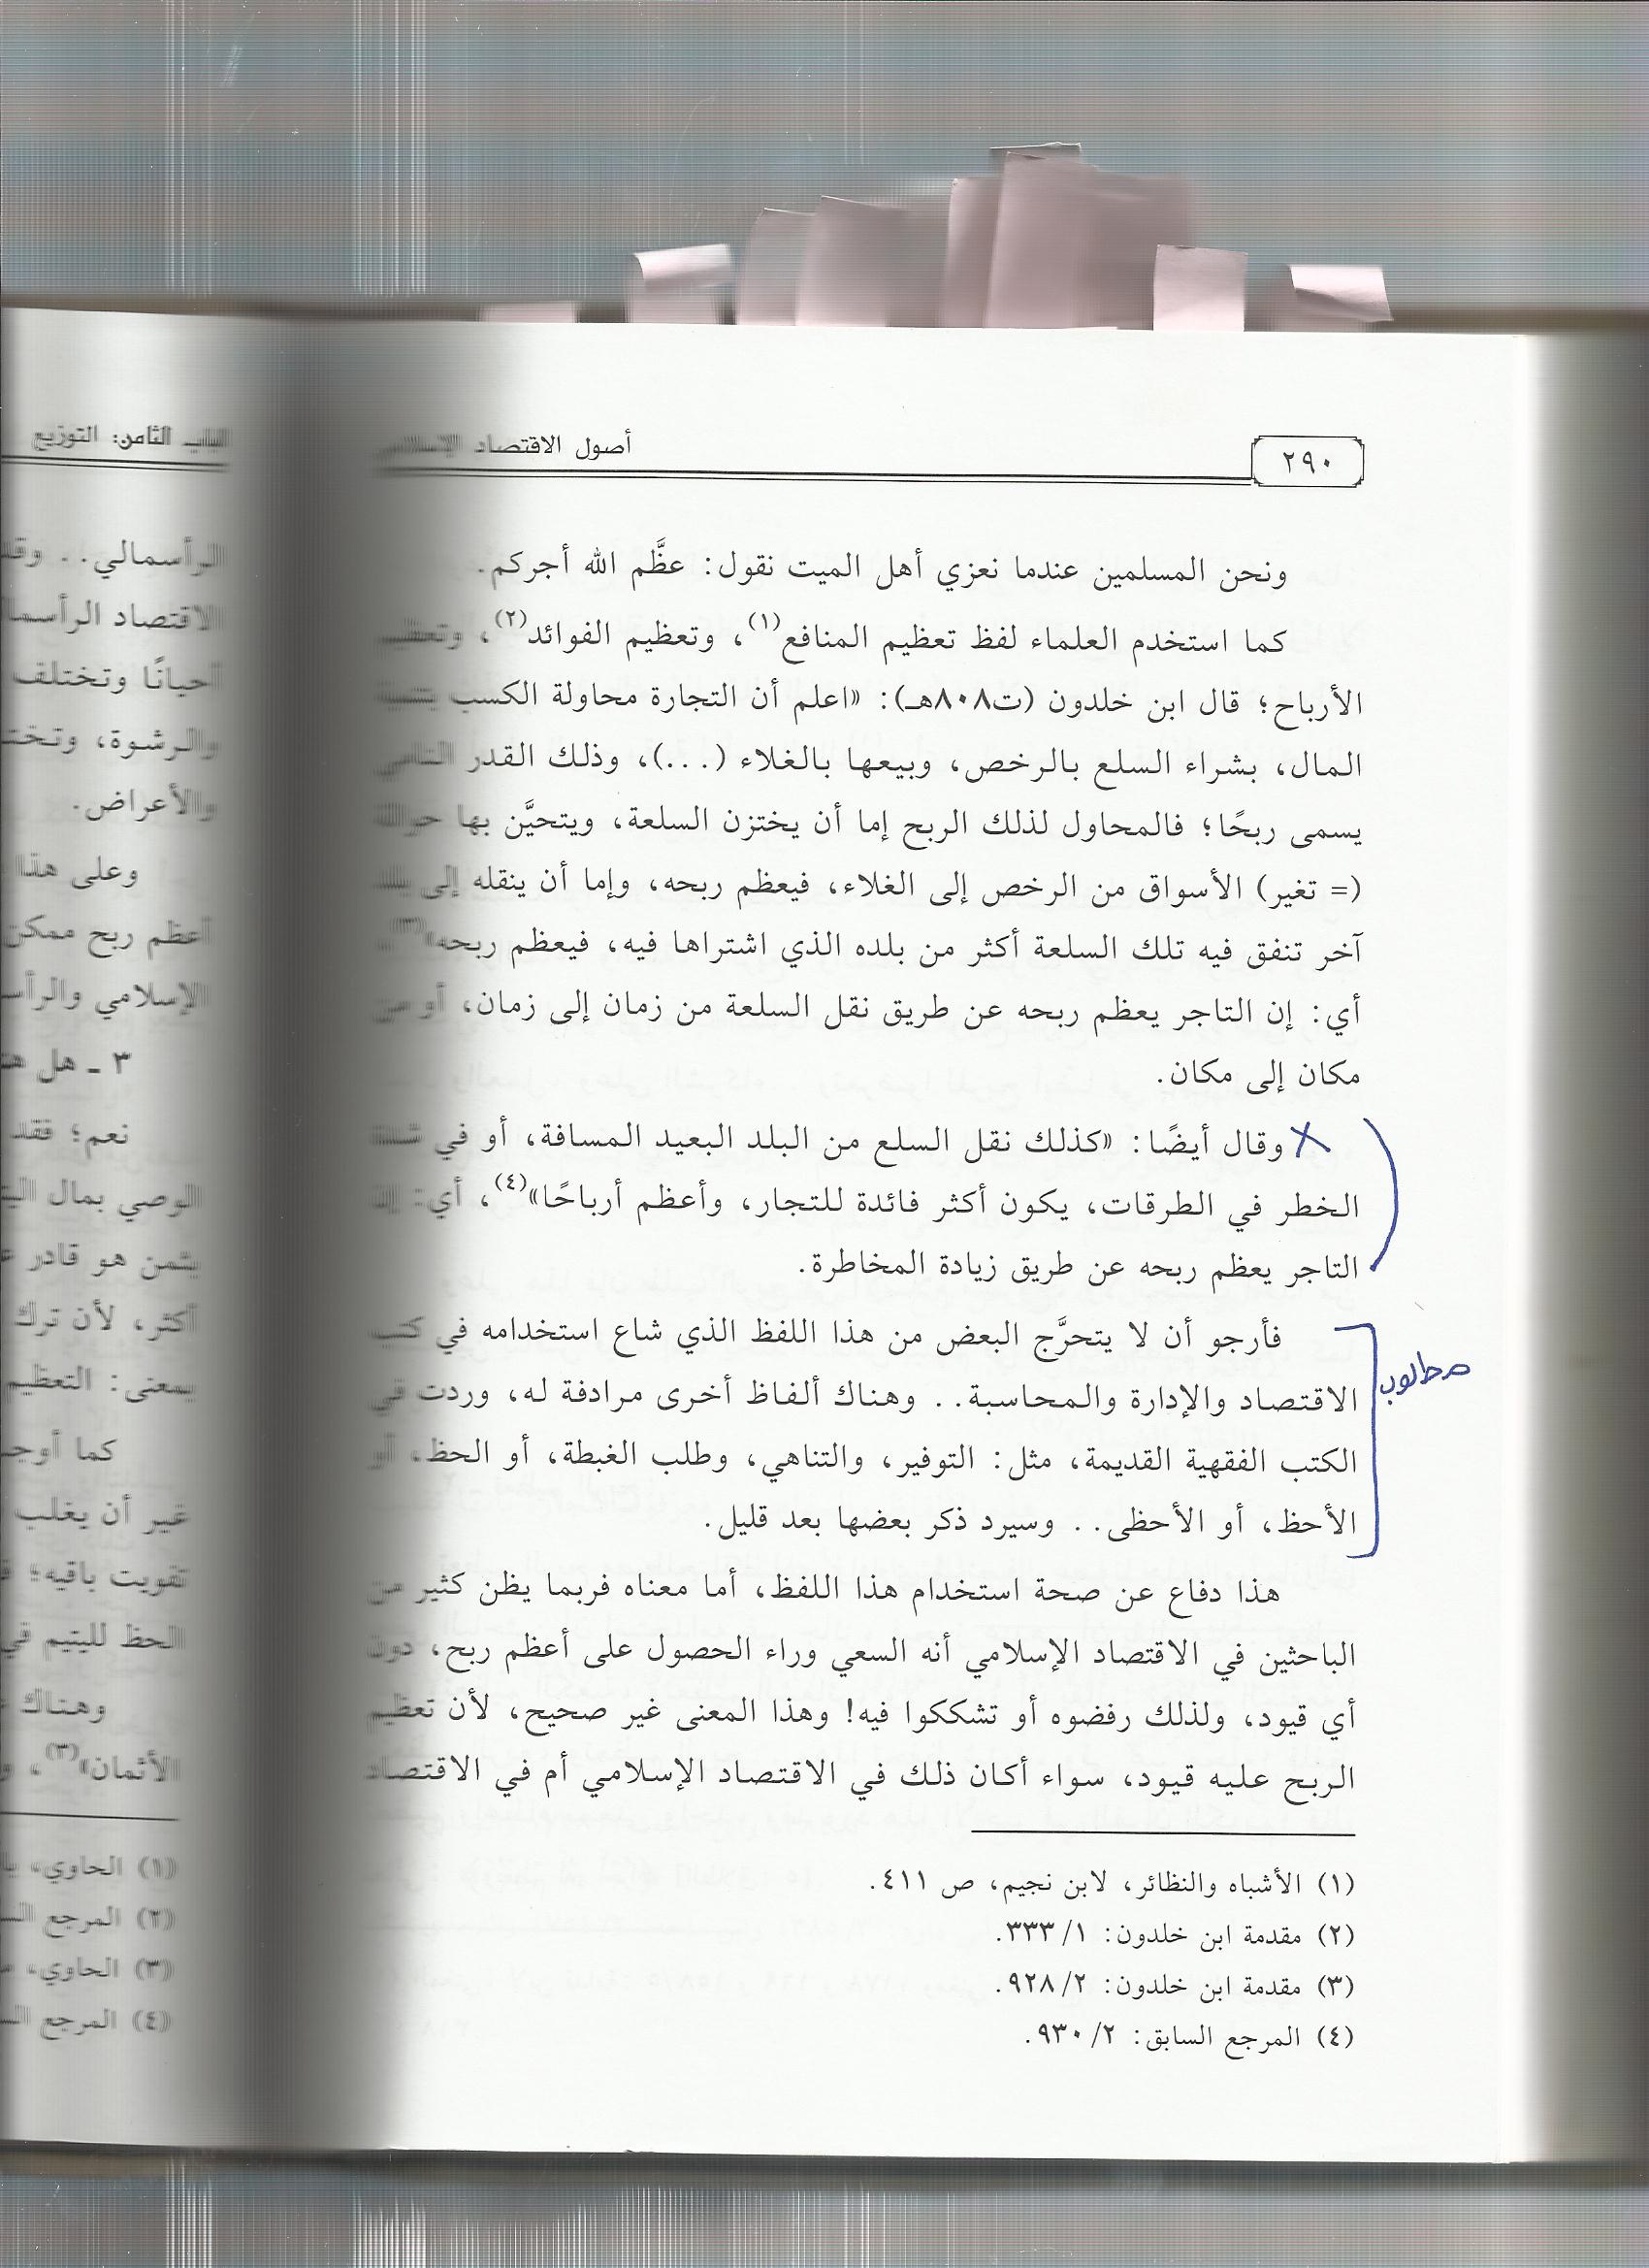 ٢٩٠
أصول الاقتصاد الإسلامي
ونحن المسلمين عندما نعزي أهل الميت نقول: عظَّم الله أجركم.
كما استخدم العلماء لفظ تعظيم المنافع(١)، وتعظيم الفوائد(٢)، وتعظيم
الأرباح؛ قال ابن خلدون (ت٨٠٨هـ): «اعلم أن التجارة محاولة الكسب بتنمية
المال، بشراء السلع بالرخص، وبيعها بالغلاء (...)، وذلك القدر النامي
يسمى ربحًا؛ فالمحاول لذلك الربح إما أن يختزن السلعة، ويتحيَّن بها حوالة
(= تغير) الأسواق من الرخص إلى الغلاء، فيعظم ربحه، وإما أن ينقله إلى بلد
آخر تنفق فيه تلك السلعة أكثر من بلده الذي اشتراها فيه، فيعظم ربحه»(٣).
أي: إن التاجر يعظم ربحه عن طريق نقل السلعة من زمان إلى زمان، أو من
مكان إلى مكان.
وقال أيضًا: «كذلك نقل السلع من البلد البعيد المسافة، أو في شدة
الخطر في الطرقات، يكون أكثر فائدة للتجار، وأعظم أرباحًا»(٤)، أي: إن
التاجر يعظم ربحه عن طريق زيادة المخاطرة.
فأرجو أن لا يتحرَّج البعض من هذا اللفظ الذي شاع استخدامه في كتب
مطلوب
الاقتصاد والإدارة والمحاسبة.. وهناك ألفاظ أخرى مرادفة له، وردت في
الكتب الفقهية القديمة، مثل: التوفير، والتناهي، وطلب الغبطة، أو الحظ، أو
الأحظ، أو الأحظى.. وسيرد ذكر بعضها بعد قليل.
هذا دفاع عن صحة استخدام هذا اللفظ، أما معناه فربما يظن كثير من
الباحثين في الاقتصاد الإسلامي أنه السعي وراء الحصول على أعظم ربح، دون
أي قيود، ولذلك رفضوه أو تشككوا فيه! وهذا المعنى غير صحيح، لأن تعظيم
الربح عليه قيود، سواء أكان ذلك في الاقتصاد الإسلامي أم في الاقتصاد
(١) الأشباه والنظائر، لابن نجيم، ص ٤١١.
(٢) مقدمة ابن خلدون: ١/ ٣٣٣.
(٣) مقدمة ابن خلدون: ٢/ ٩٢٨.
(٤) المرجع السابق: ٢/ ٩٣٠.
الباب الثامن: التوزيع
الرأسمالي.. وقد
الاقتصاد
أحيانًا وتختلف
والرشوة،
والأعراض.
وعلى هذا
أعظم ربح ممكن
الإسلامي
٣ ـ هل
نعم؛ فقد
الوصي بمال
بثمن هو قادر
أكثر، لأن ترك
بمعنى: التعظيم
كما
غير أن يغلب
تفويت باقيه؛
الحظ لليتيم في
وهناك
الأثمان»(٣)،
(١) الحاوي،
(٢) المرجع
(٣) الحاوي،
(٤) المرجع